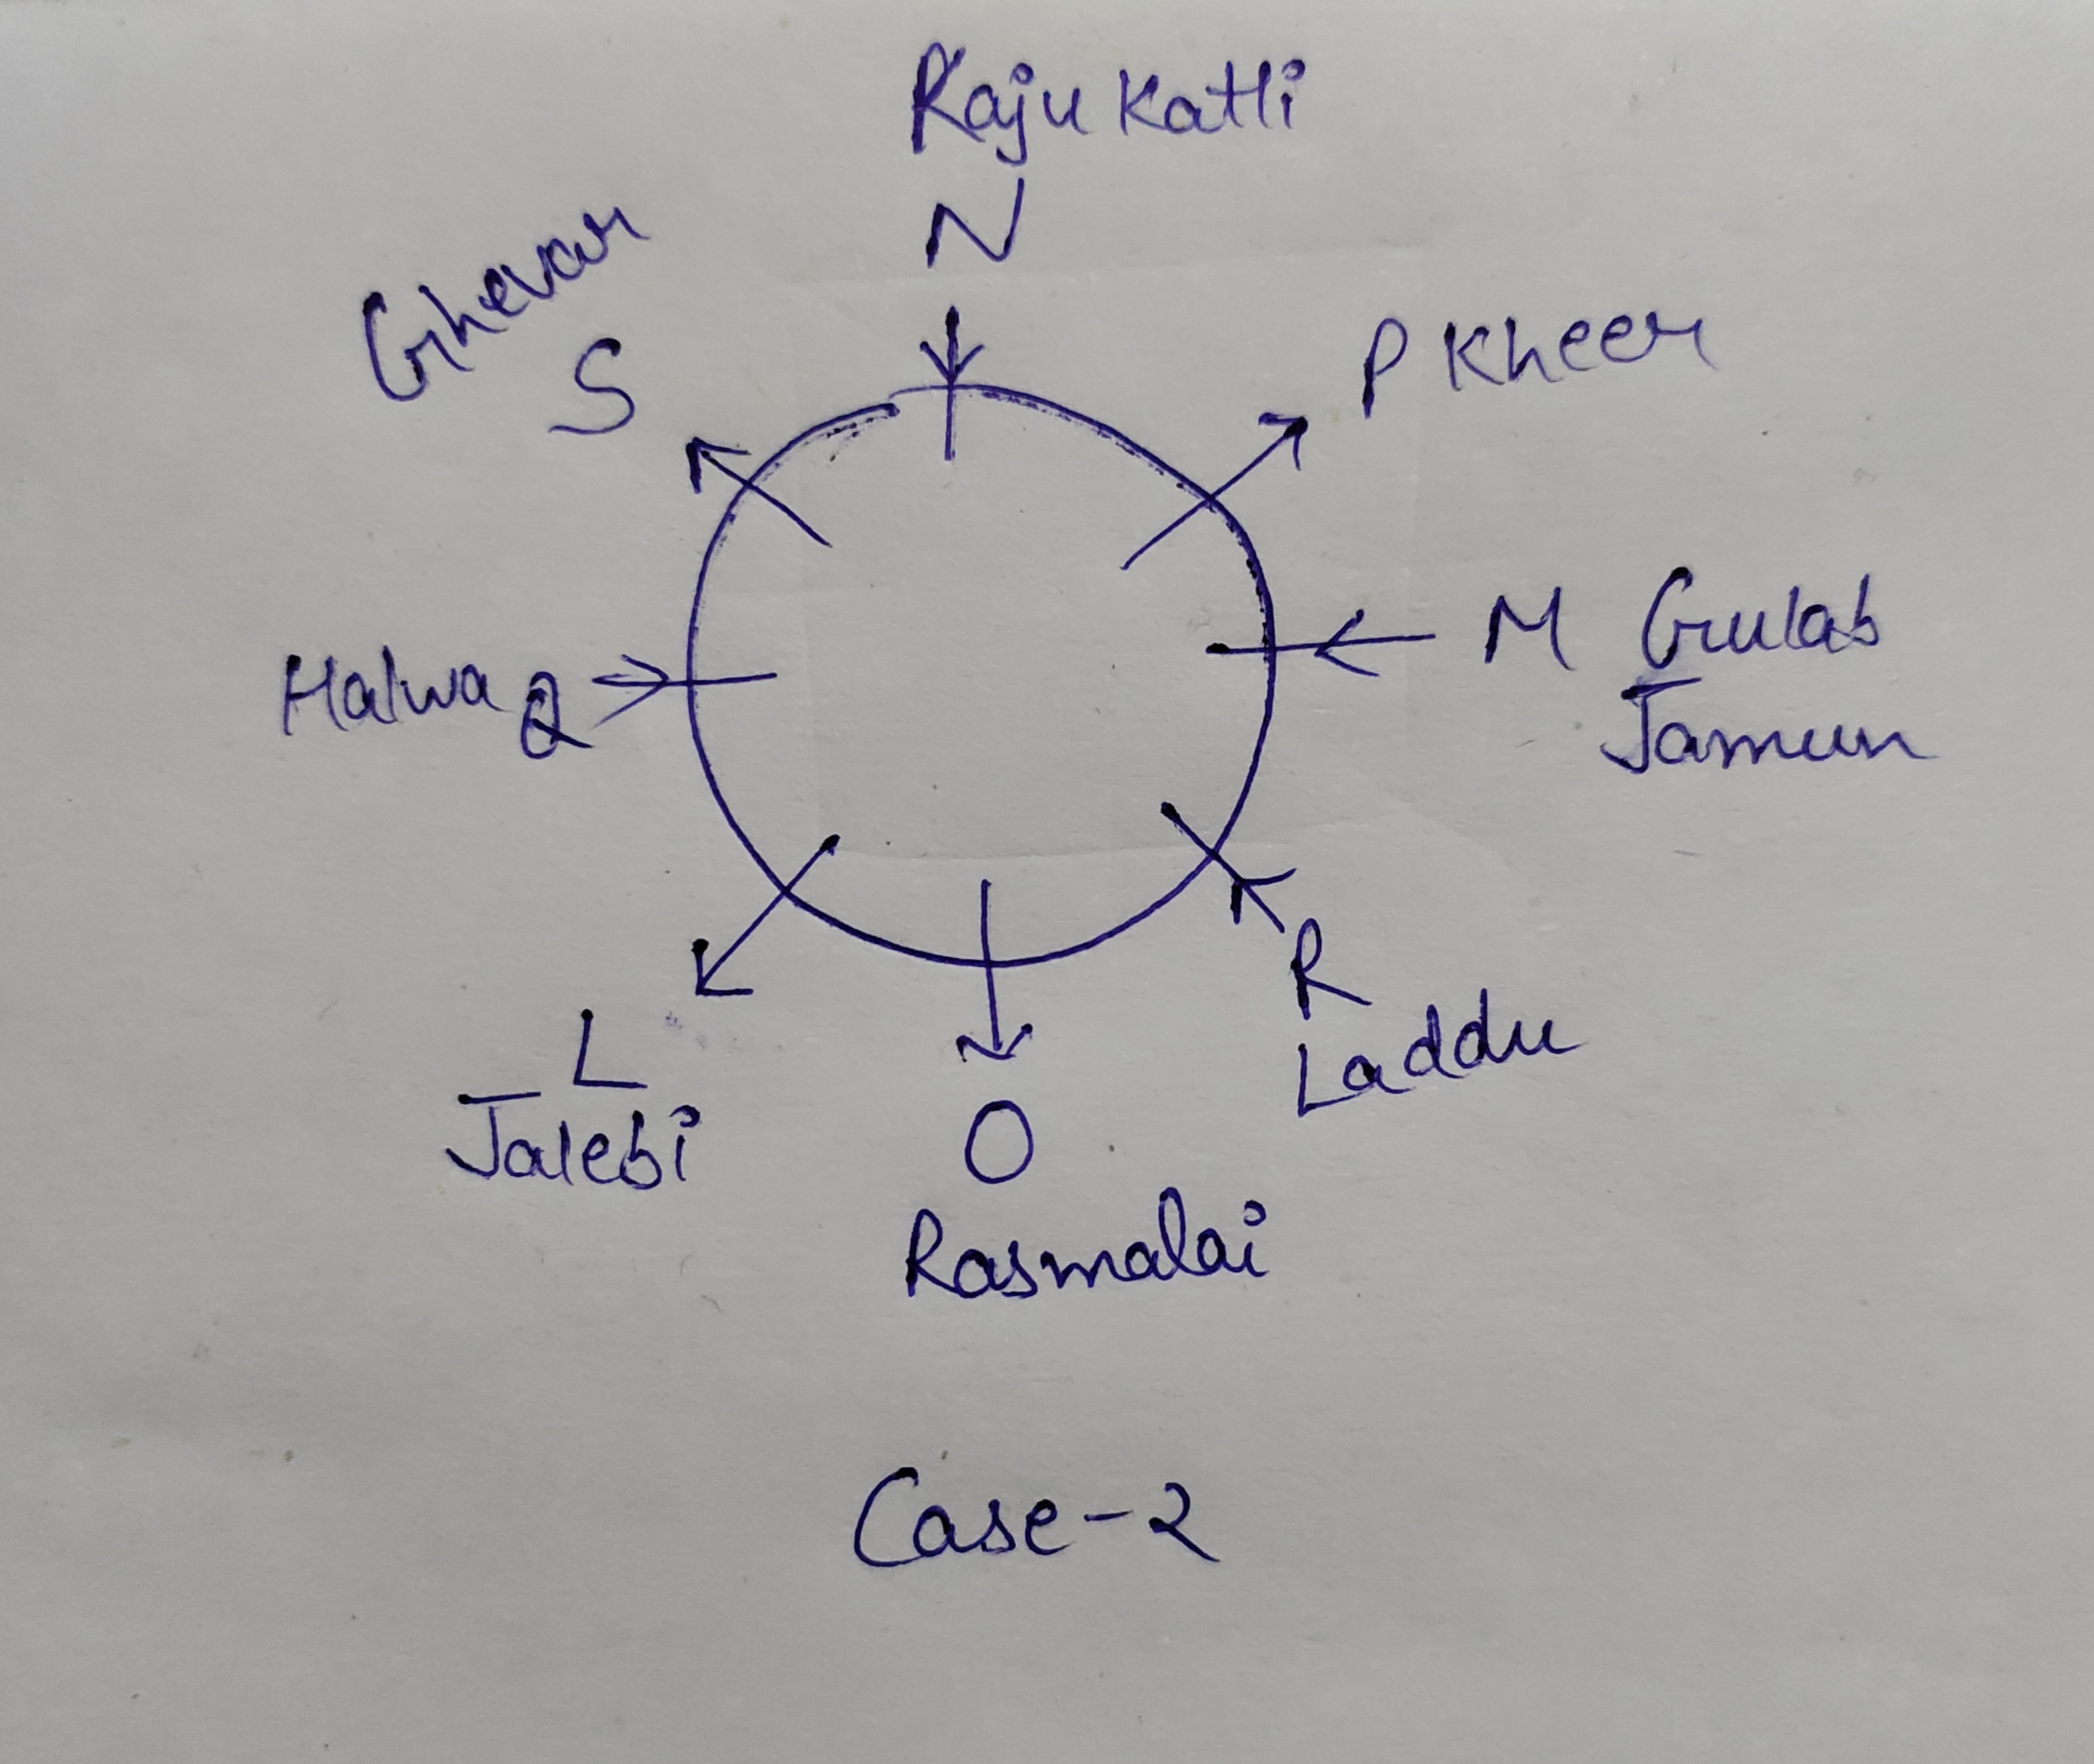 Kaju Katli
N
Ghevar
S
P Kheer
M Gulab
Jamun
Halwa Q
R
Laddu
L
Jalebi
O
Rasmalai
Case-2